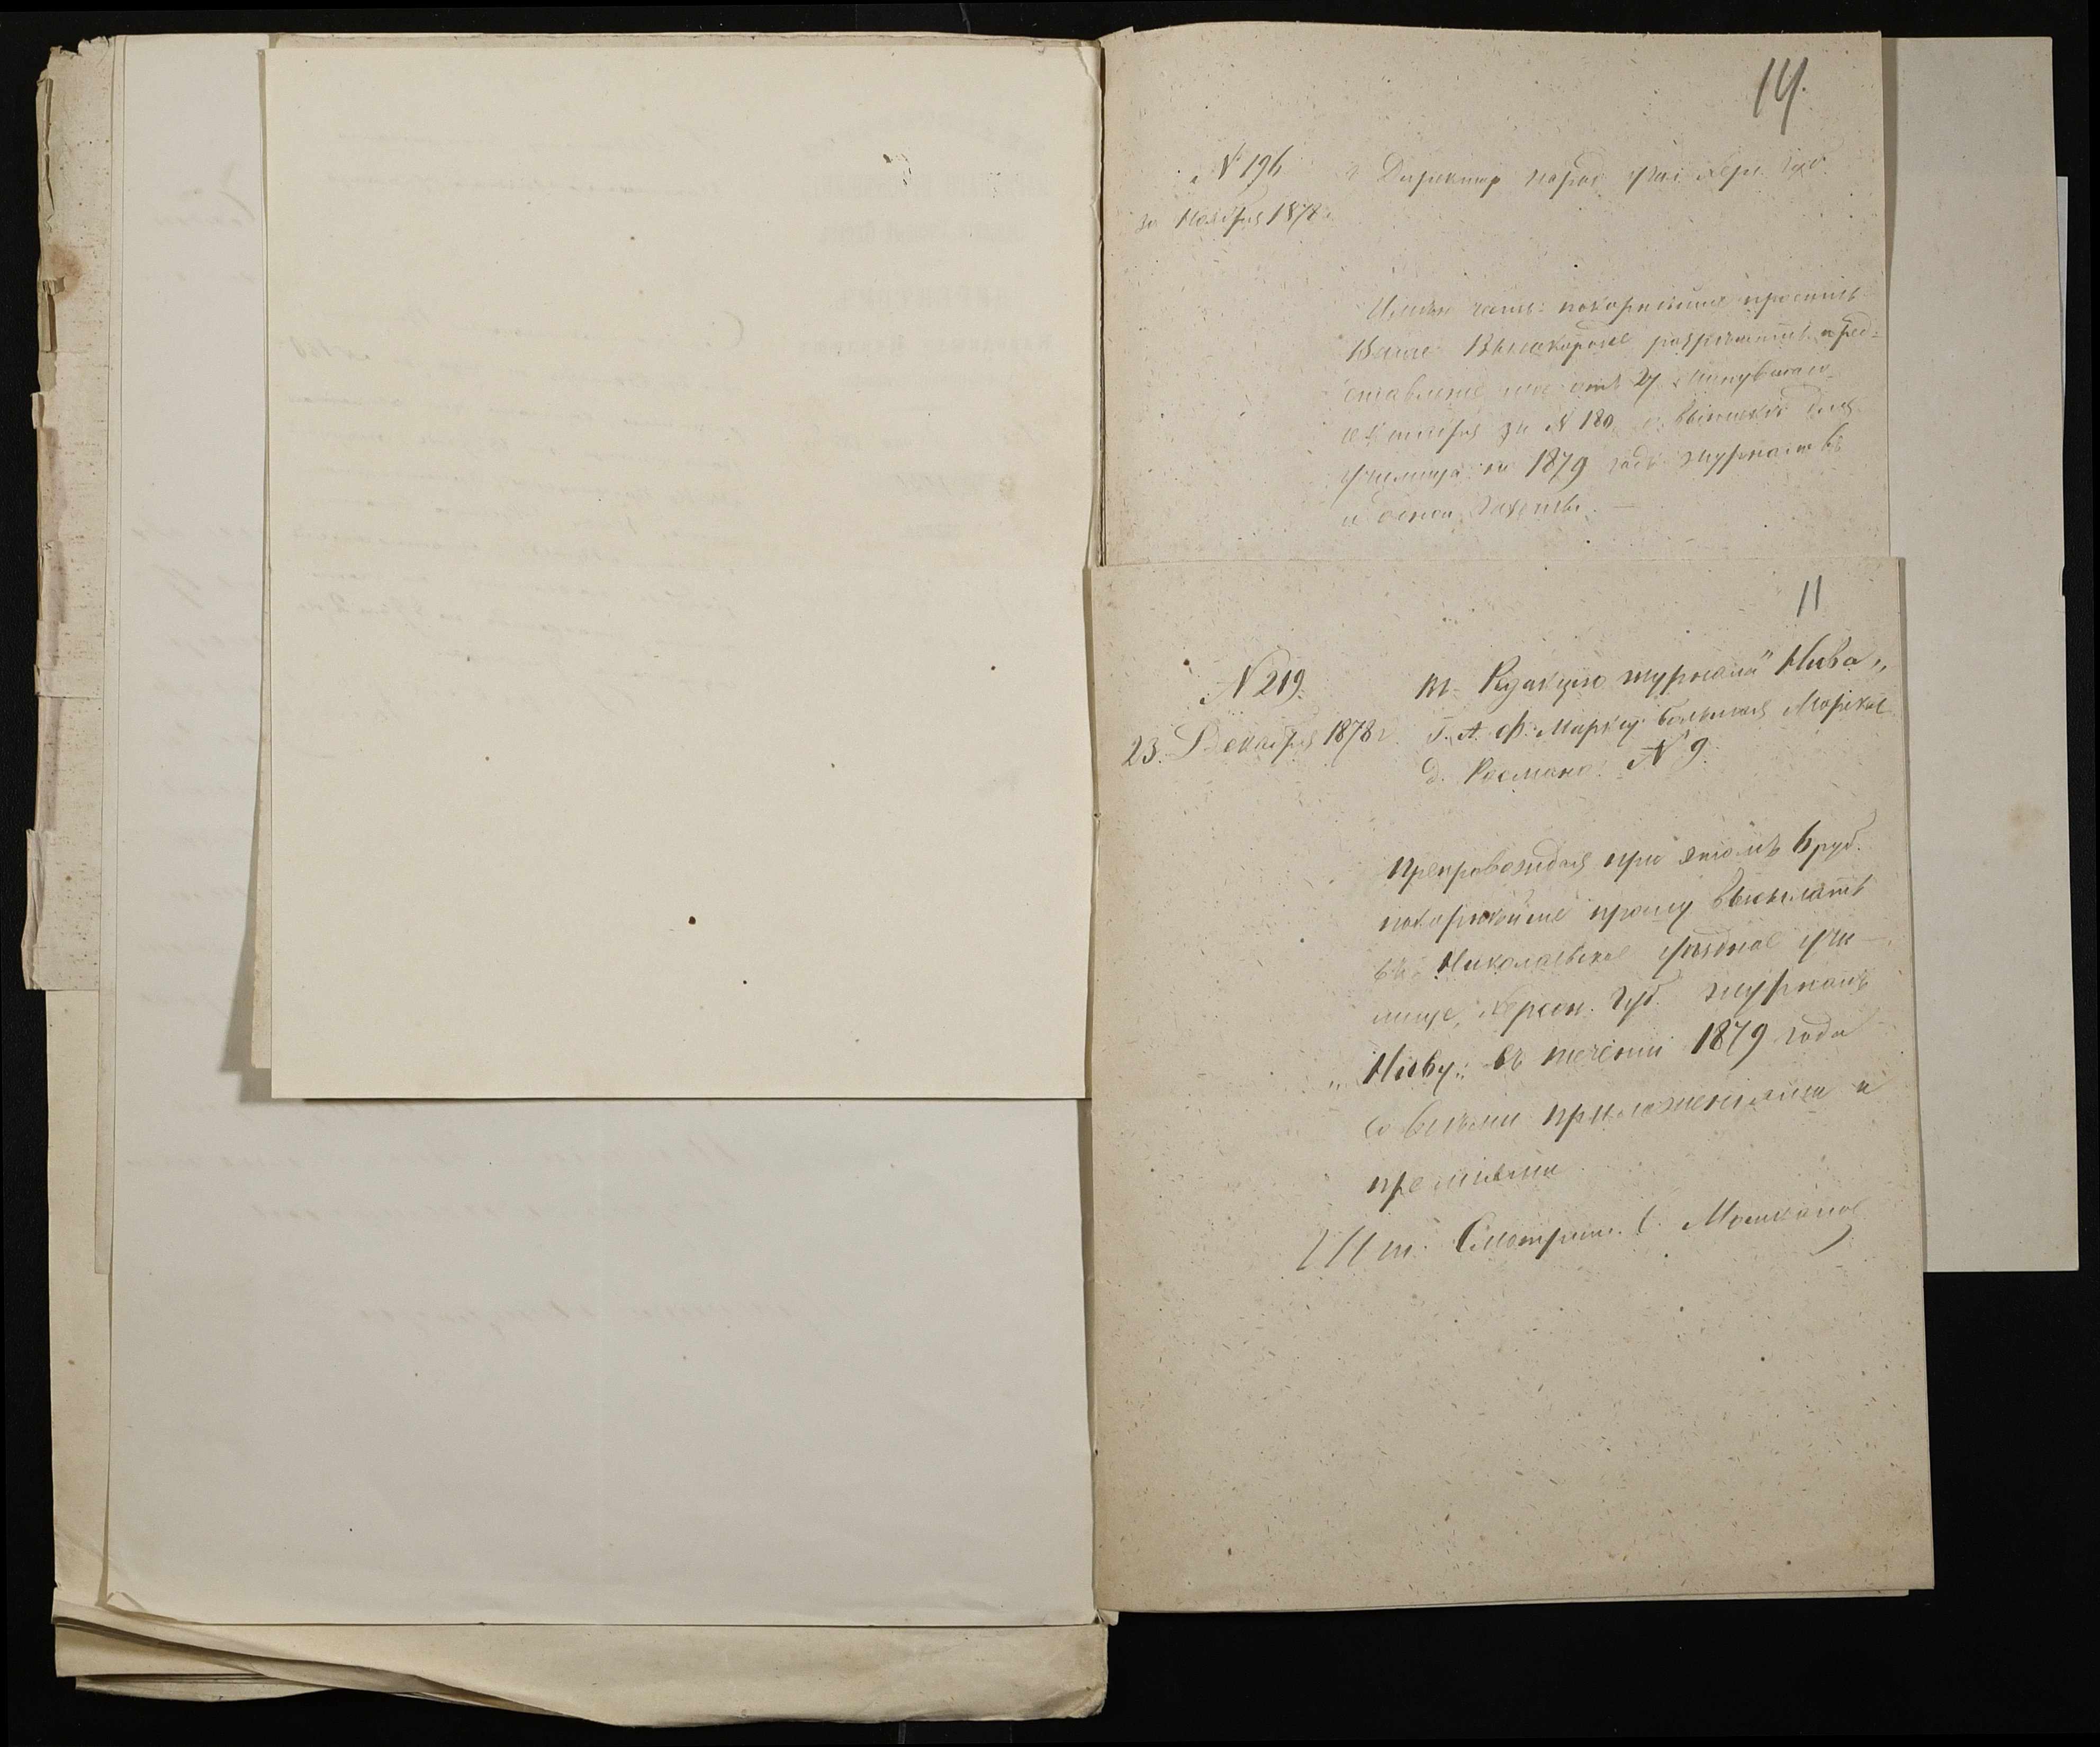 14.
№ 196
Г. Директору народ. учил. Херс. губ.
30 Ноября 1878 г.
Имѣю честь покорнѣйше просить
Ваше Высокородіе разрѣшить пред=
ставленіе мое отъ 27 минувшаго
октября за № 180, о выпискѣ для
училища на 1879 годъ журналовъ
и одной газеты. —
11
№ 219.
23 Декабря 1878 г.
Въ Редакцію журнала "Нива„
Г. А. Ф. Марксу Большая Морская
д. Росмана № 9.
Препровождая при этомъ 6 руб.
покорнѣйше прошу высылать
въ Николаевское уѣздное учи-
лище, Херсон. губ. журналъ
„Ниву„ въ теченіи 1879 года
со всѣми приложеніями и
преміями
Шт. Смотрит.